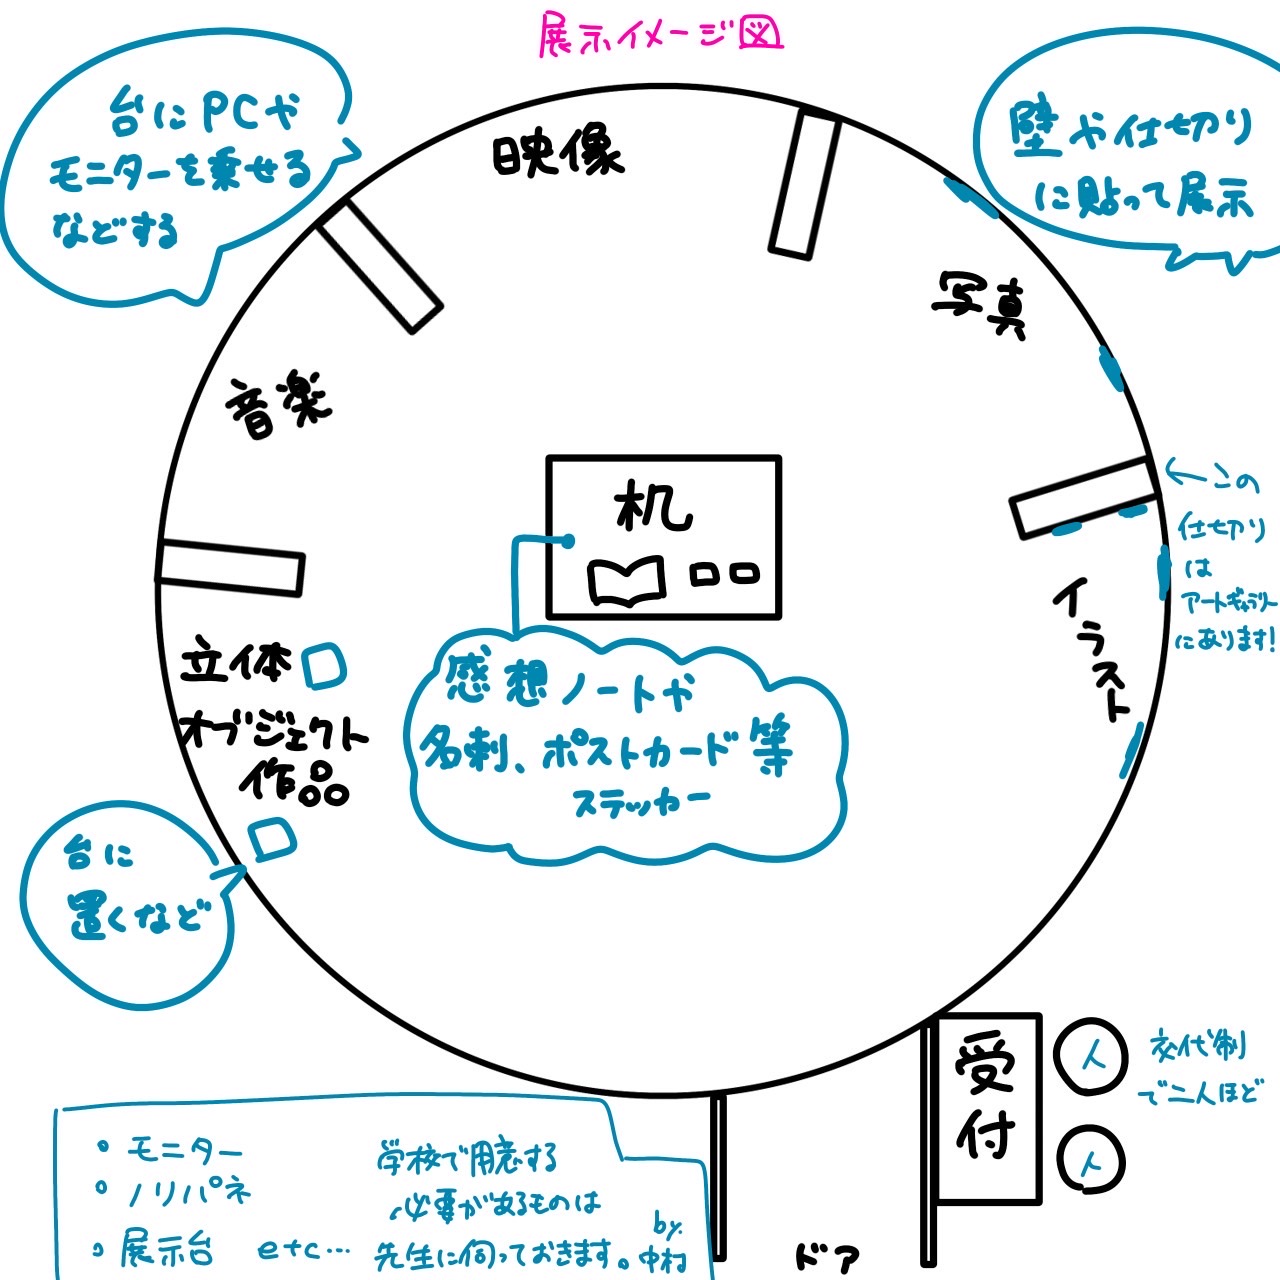 展示イメージ図
台にPCや
モニターを乗せる
などする
映像
壁や仕切り
に貼って展示
写真
音楽
机
←この
仕切り
は
アートギャラリー
にあります!
イラスト
立体
オブジェクト
作品
感想ノートや
名刺、ポストカード等
ステッカー
台に
置くなど
受付
人
人
交代制
で二人ほど
・モニター
・ノリパネ
・展示台 etc…
学校で用意する
必要があるものは
先生に伺っておきます。
by.中村
ドア